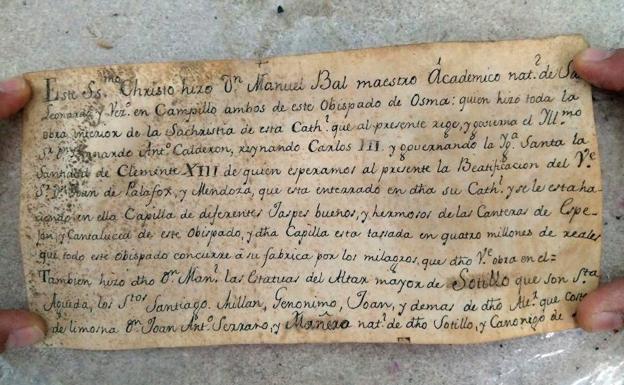 Este Ss.mo Christo hizo Dn Manuel Bal maestro Academico nat.l de Sn
Leonardo y Vez.o en Campillo ambos de este Obispado de Osma: quien hizo toda la
obra interior de la Sachristia de esta Cath.l que al presente rige, y govierna el Yll.mo
Sr Dn Bernardo Ant.o Calderon, reynando Carlos III. y governando la Yg.a Santa la
Santidad de Clemente XIII de quien esperamos al presente la Beatificacion del V.e
Sr Dn Juan de Palafox, y Mendoza, que esta enterrado en dha su Cath.l y se le esta ha-
ciendo en ella Capilla de diferentes Jaspes buenos, y hermosos de las Canteras de Espe-
jon, y Cantalucia de este Obispado, y dha Capilla esta tasada en quatro millones de reales
que todo este Obispado concurre a su fabrica por los milagros, que dho V.e obra en el=
Tambien hizo dho Dn Man.l las Estatuas del Altar mayor de Sotillo que son S.ta
Agueda, los S.tos Santiago, Millan, Geronimo, Joan, y demas de dho Al.r que costeo
de limosna Dn Joan Ant.o Serrano, y Mañero nat.l de dho Sotillo, y Canonigo de